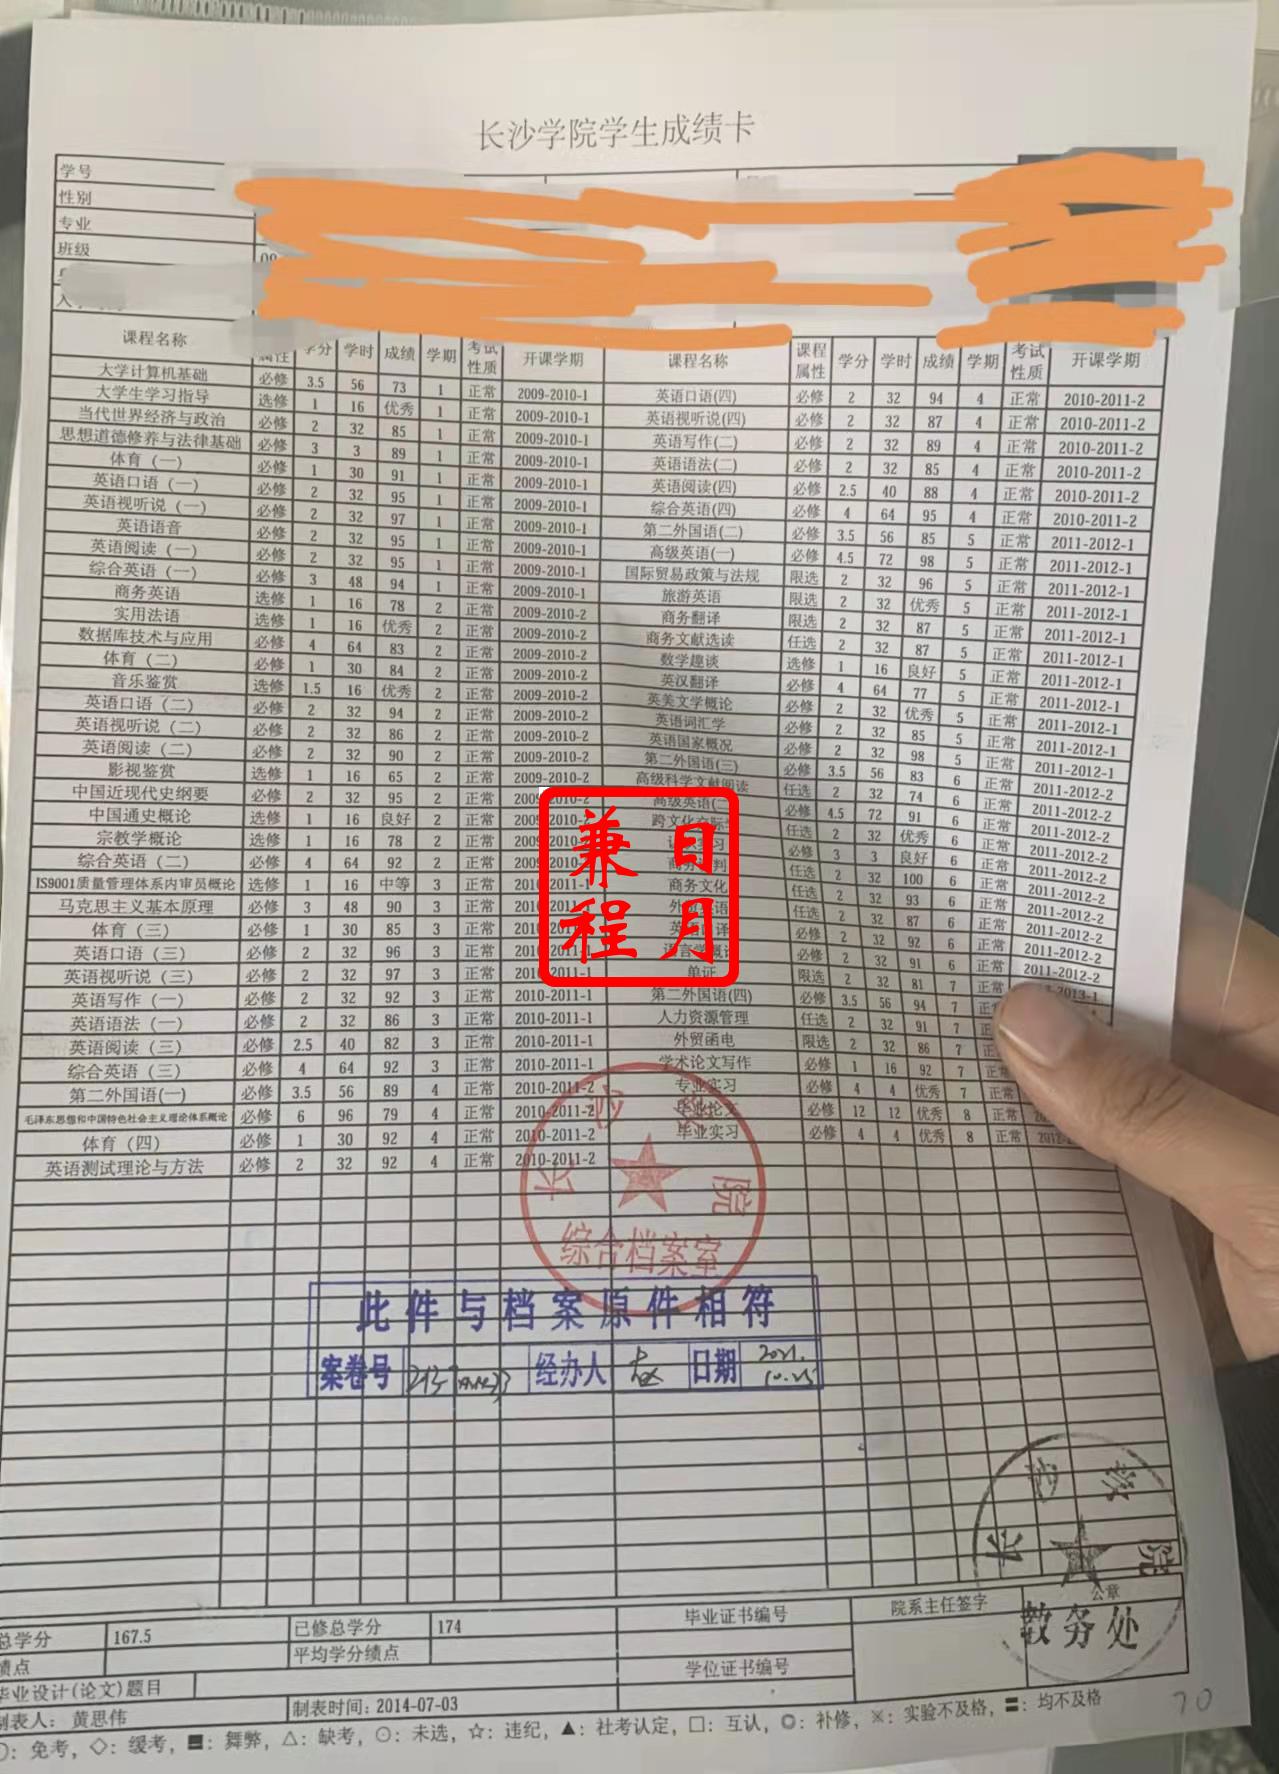 长沙学院学生成绩卡
学号
性别
专业
班级
课程名称 属性 学分 学时 成绩 学期 考试性质 开课学期 课程名称 课程属性 学分 学时 成绩 学期 考试性质 开课学期
大学计算机基础 必修 3.5 56 73 1 正常 2009-2010-1 英语口语(四) 必修 2 32 94 4 正常 2010-2011-2
大学生学习指导 选修 1 16 优秀 1 正常 2009-2010-1 英语视听说(四) 必修 2 32 87 4 正常 2010-2011-2
当代世界经济与政治 必修 2 32 85 1 正常 2009-2010-1 英语写作(二) 必修 2 32 89 4 正常 2010-2011-2
思想道德修养与法律基础 必修 3 3 89 1 正常 2009-2010-1 英语语法(二) 必修 2 32 85 4 正常 2010-2011-2
体育（一） 必修 1 30 91 1 正常 2009-2010-1 英语阅读(四) 必修 2.5 40 88 4 正常 2010-2011-2
英语口语（一） 必修 2 32 95 1 正常 2009-2010-1 综合英语(四) 必修 4 64 95 4 正常 2010-2011-2
英语视听说（一） 必修 2 32 97 1 正常 2009-2010-1 第二外国语(二) 必修 3.5 56 85 5 正常 2011-2012-1
英语语音 必修 2 32 95 1 正常 2009-2010-1 高级英语(一) 必修 4.5 72 98 5 正常 2011-2012-1
英语阅读（一） 必修 2 32 95 1 正常 2009-2010-1 国际贸易政策与法规 限选 2 32 96 5 正常 2011-2012-1
综合英语（一） 必修 3 48 94 1 正常 2009-2010-1 旅游英语 限选 2 32 优秀 5 正常 2011-2012-1
商务英语 选修 1 16 78 2 正常 2009-2010-2 商务翻译 限选 2 32 87 5 正常 2011-2012-1
实用法语 选修 1 16 优秀 2 正常 2009-2010-2 商务文献选读 任选 2 32 87 5 正常 2011-2012-1
数据库技术与应用 必修 4 64 83 2 正常 2009-2010-2 数学趣谈 选修 1 16 良好 5 正常 2011-2012-1
体育（二） 必修 1 30 84 2 正常 2009-2010-2 英汉翻译 必修 4 64 77 5 正常 2011-2012-1
音乐鉴赏 选修 1.5 16 优秀 2 正常 2009-2010-2 英美文学概论 必修 2 32 优秀 5 正常 2011-2012-1
英语口语（二） 必修 2 32 94 2 正常 2009-2010-2 英语词汇学 必修 2 32 85 5 正常 2011-2012-1
英语视听说（二） 必修 2 32 86 2 正常 2009-2010-2 英语国家概况 必修 2 32 98 5 正常 2011-2012-1
英语阅读（二） 必修 2 32 90 2 正常 2009-2010-2 第二外国语(三) 必修 3.5 56 83 6 正常 2011-2012-2
影视鉴赏 选修 1 16 65 2 正常 2009-2010-2 高级科学文献阅读 任选 2 32 74 6 正常 2011-2012-2
中国近现代史纲要 必修 2 32 95 2 正常 2009-2010-2 高级英语(二 必修 4.5 72 91 6 正常 2011-2012-2
中国通史概论 选修 1 16 良好 2 正常 2009-2010-2 跨文化交际 任选 2 32 优秀 6 正常 2011-2012-2
宗教学概论 选修 1 16 78 2 正常 2009-2010-2 习 必修 3 3 良好 6 正常 2011-2012-2
综合英语（二） 必修 4 64 92 2 正常 2009-2010-2 商务 判 任选 2 32 100 6 正常 2011-2012-2
IS9001质量管理体系内审员概论 选修 1 16 中等 3 正常 2010-2011-1 商务文化 任选 2 32 93 6 正常 2011-2012-2
马克思主义基本原理 必修 3 48 90 3 正常 2010-2011-1 外 英语 任选 2 32 87 6 正常 2011-2012-2
体育（三） 必修 1 30 85 3 正常 2010-2011-1 英语 译 必修 2 32 92 6 正常 2011-2012-2
英语口语（三） 必修 2 32 96 3 正常 2010-2011-1 语言学概 必修 2 32 91 6 正常 2011-2012-2
英语视听说（三） 必修 2 32 97 3 正常 2010-2011-1 单证 限选 2 32 81 7 正常 -2013-1
英语写作（一） 必修 2 32 92 3 正常 2010-2011-1 第二外国语(四) 必修 3.5 56 94 7 正
英语语法（一） 必修 2 32 86 3 正常 2010-2011-1 人力资源管理 任选 2 32 91 7 正
英语阅读（三） 必修 2.5 40 82 3 正常 2010-2011-1 外贸函电 限选 2 32 86 7 正
综合英语（三） 必修 4 64 92 3 正常 2010-2011-1 学术论文写作 必修 1 16 92 7 正
第二外国语(一) 必修 3.5 56 89 4 正常 2010-2011-2 专业实习 必修 4 4 优秀 7 正常
毛泽东思想和中国特色社会主义理论体系概论 必修 6 96 79 4 正常 2010-2011-2 毕业论文 必修 12 12 优秀 8 正常
体育（四） 必修 1 30 92 4 正常 2010-2011-2 毕业实习 必修 4 4 优秀 8 正常
英语测试理论与方法 必修 2 32 92 4 正常 2010-2011-2
兼程日月
长沙学院
综合档案室
此件与档案原件相符
案卷号 经办人 日期 2021.10.25
长沙学院
公章
教务处
总学分 167.5 已修总学分 174 毕业证书编号 院系主任签字
绩点 平均学分绩点 学位证书编号
毕业设计(论文)题目
制表人：黄思伟 制表时间：2014-07-03
○：免考，◇：缓考，〓：舞弊，△：缺考，⊙：未选，☆：违纪，▲：社考认定，□：互认，◎：补修，※：实验不及格，〓：均不及格
70